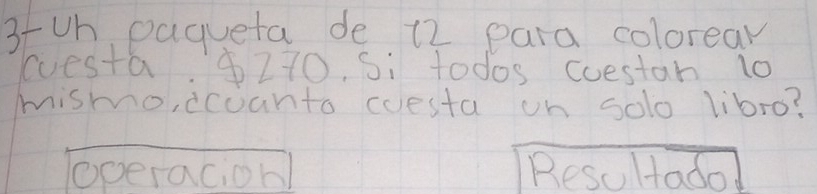 3-Un paqueta de 12 para colorear
cuesta. $270. Si todos cuestan lo
mismo, ¿cuanto cuesta un solo libro?
operacion Resultado